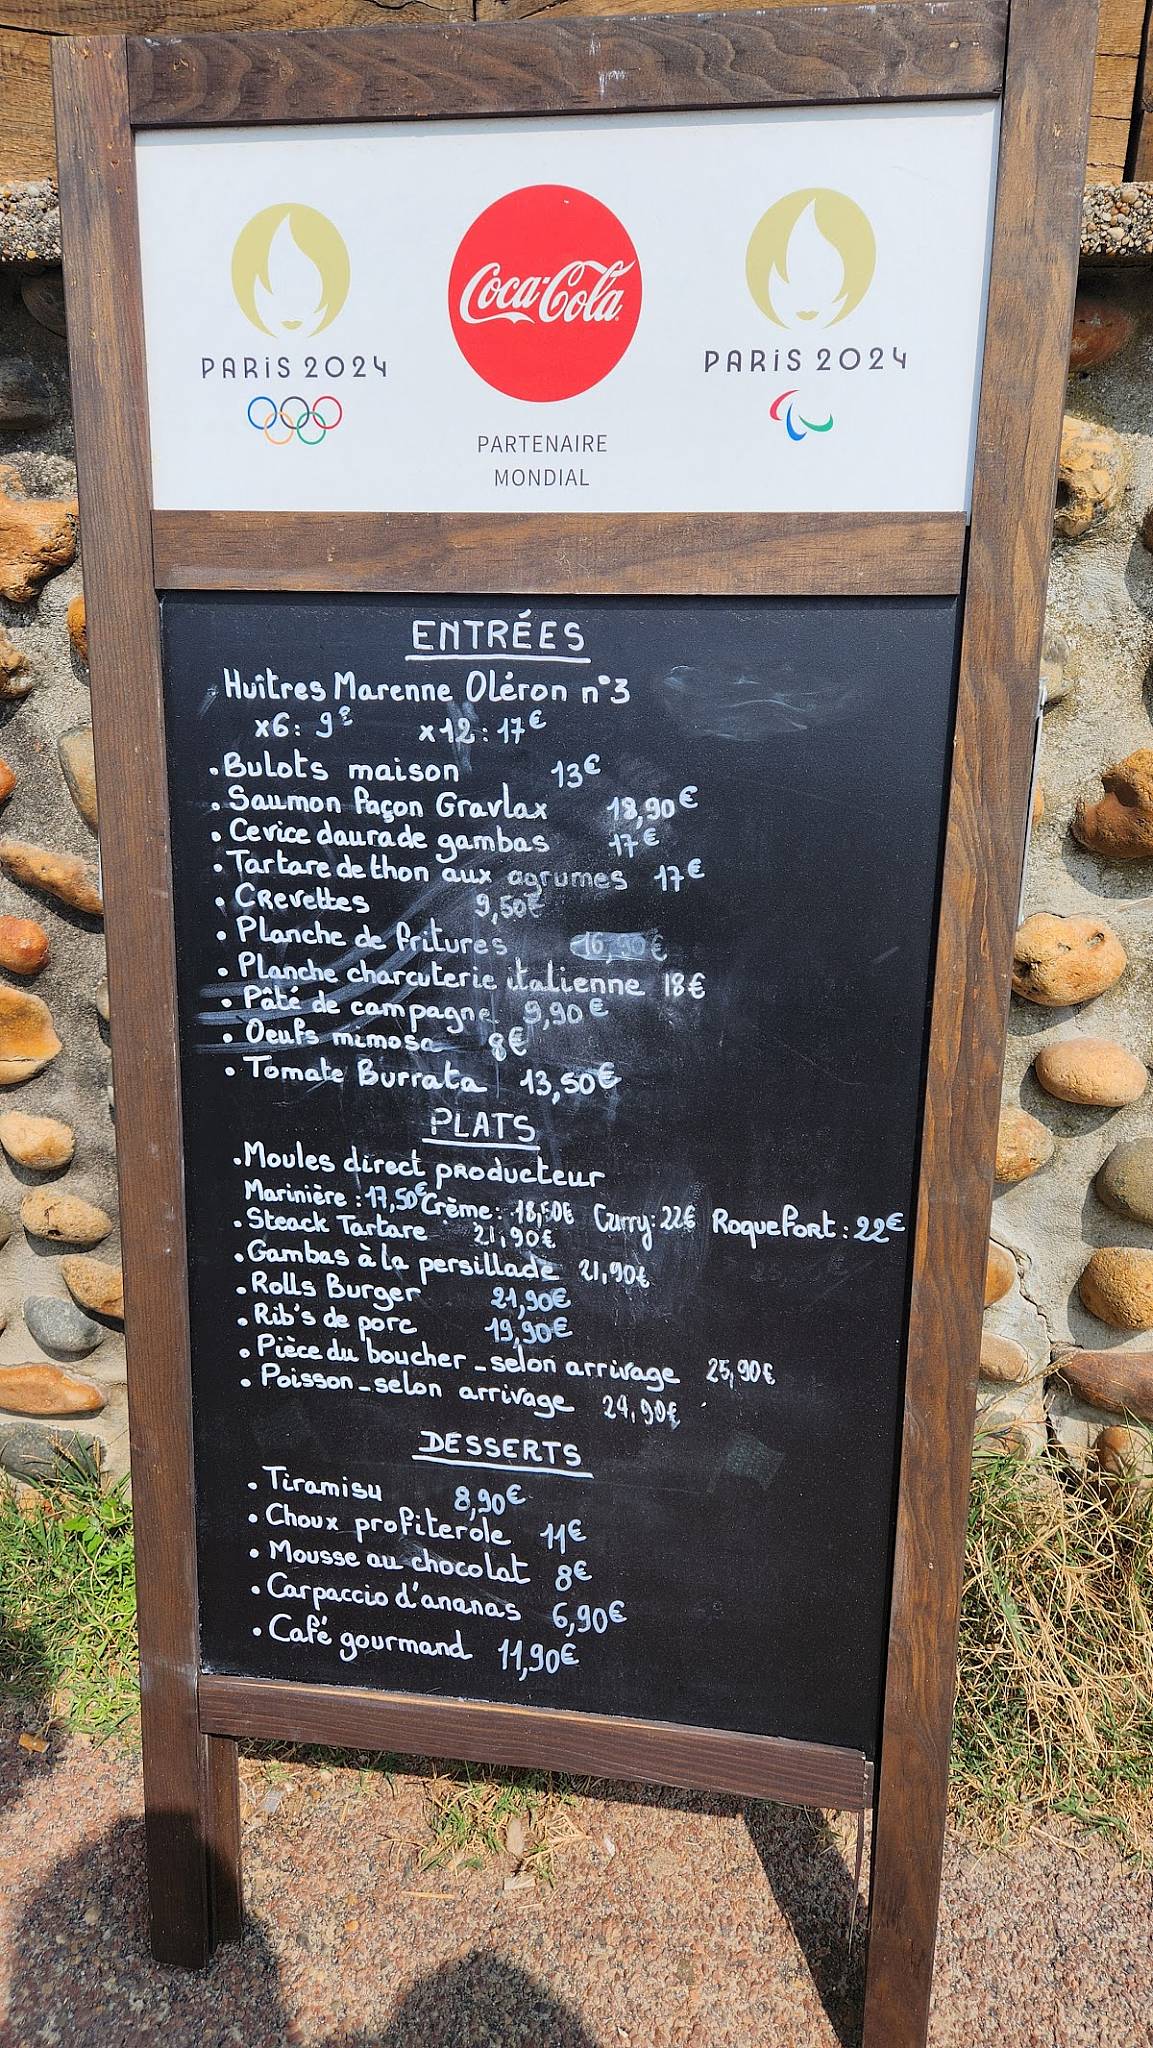 PARIS 2024
Coca-Cola
PARTENAIRE
MONDIAL
PARIS 2024
ENTRÉES
Huîtres Marenne Oléron n°3
x6: 9€ x12: 17€
• Bulots maison 13€
• Saumon façon Gravlax 18,90€
• Cevice daurade gambas 17€
• Tartare de thon aux agrumes 17€
• Crevettes 9,50€
• Planche de fritures 16,90€
• Planche charcuterie italienne 18€
• Pâté de campagne 9,90€
• Oeufs mimosa 8€
• Tomate Burrata 13,50€
PLATS
• Moules direct producteur
Marinière: 17,50€ Crème: 18,50€ Curry: 22€ Roquefort: 22€
• Steack Tartare 21,90€
• Gambas à la persillade 21,90€
• Rolls Burger 21,90€
• Rib's de porc 19,90€
• Pièce du boucher - selon arrivage 25,90€
• Poisson - selon arrivage 24,90€
DESSERTS
• Tiramisu 8,90€
• Choux profiterole 11€
• Mousse au chocolat 8€
• Carpaccio d'ananas 6,90€
• Café gourmand 11,90€